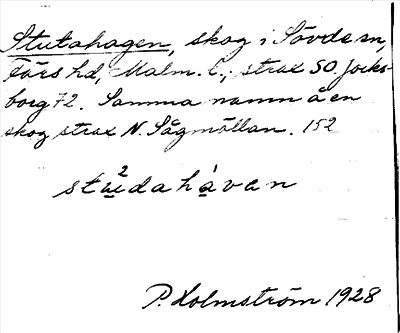 Stutahagen, skog i Sövde sn,
Färs hd, Malm. l., strax SO. Jocks-
borg 72. Samma namn å en
skog strax N. Sågmöllan. 152
stu²dahàvan
P. Holmström 1928